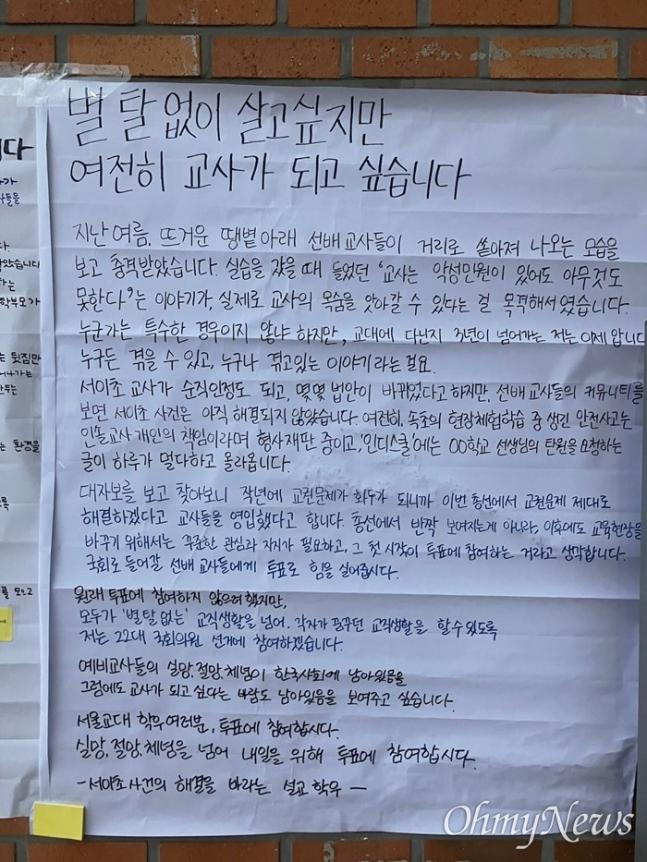 별 탈 없이 살고싶지만
여전히 교사가 되고 싶습니다
지난 여름, 뜨거운 땡볕 아래 선배 교사들이 거리로 쏟아져 나오는 모습을
보고 충격받았습니다. 실습을 갔을 때 들었던 "교사는 악성민원이 있어도 아무것도
못한다"는 이야기가, 실제로 교사의 목숨을 앗아갈 수 있다는 걸 목격해서였습니다.
누군가는 특수한 경우이지 않냐 하지만, 교대에 다닌지 3년이 넘어가는 저는 이제 압니다
누구든 겪을 수 있고, 누구나 겪고있는 이야기라는 걸요.
서이초 교사가 순직인정도 되고, 몇몇 법안이 바뀌었다고 하지만, 선배 교사들의 커뮤니티를
보면 서이초 사건은 아직 해결되지 않았습니다. 여전히, 속초의 현장체험학습 중 생긴 안전사고는
인솔교사 개인의 책임이라며 형사재판 중이고, '인디스쿨'에는 OO학교 선생님의 탄원을 요청하는
글이 하루가 멀다하고 올라옵니다.
대자보를 보고 찾아보니 작년에 교권문제가 화두가 되니까 이번 총선에서 교권문제 제대로
해결하겠다고 교사들을 영입했다고 합니다. 총선에서 반짝 보여지는게 아니라, 이후에도 교육현장을
바꾸기 위해서는 꾸준한 관심과 지지가 필요하고, 그 첫 시작이 투표에 참여하는 거라고 생각합니다.
국회로 들어갈 선배 교사들에게 투표로 힘을 실어줍시다.
원래 투표에 참여하지 않으려 했지만,
모두가 '별 탈 없는' 교직생활을 넘어, 각자가 꿈꾸던 교직생활을 할 수 있도록
저는 22대 국회의원 선거에 참여하겠습니다.
예비교사들의 실망, 절망, 체념이 한국사회에 남아있음을
그럼에도 교사가 되고 싶다는 바람도 남아있음을 보여주고 싶습니다.
서울교대 학우 여러분, 투표에 참여합시다.
실망, 절망, 체념을 넘어 내일을 위해 투표에 참여합시다.
- 서이초 사건의 해결을 바라는 설교 학우 -
OhmyNews